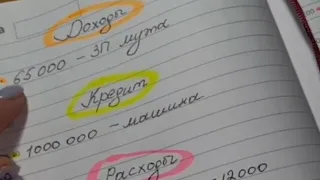 Доходы
65000 - ЗП мужа
Кредит
1000000 - машина
Расходы
12000